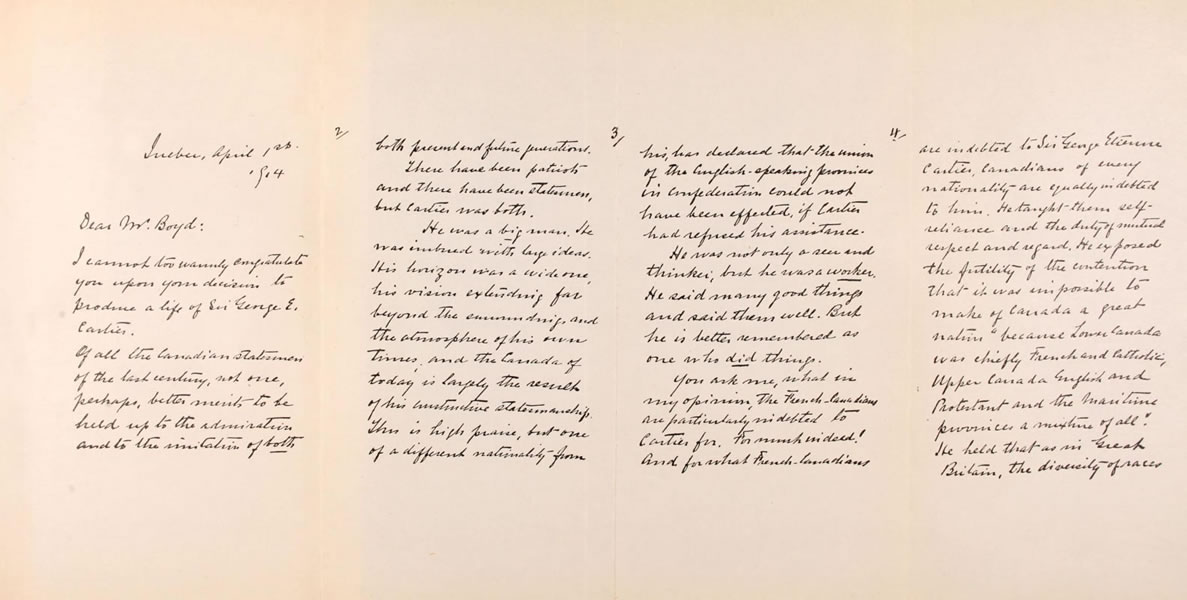 Quebec, April 1st.
1914
Dear Mr. Boyd:
I cannot too warmly congratulate
you upon your decision to
produce a life of Sir George E.
Cartier.
Of all the Canadian statesmen
of the last century, not one,
perhaps, better merits to be
held up to the admiration
and to the imitation of both
2/
both present and future generations.
There have been patriots
and there have been statesmen,
but Cartier was both.
He was a big man. He
was imbued with large ideas.
His horizon was a wide one,
his vision extending far
beyond the surroundings and
the atmosphere of his own
times, and the Canada of
today is largely the result
of his constructive statesmanship.
This is high praise, but one
of a different nationality from
3/
his, has declared that the union
of the English-speaking provinces
in Confederation could not
have been effected, if Cartier
had refused his assistance.
He was not only a seer and
thinker, but he was a worker.
He said many good things
and said them well. But
he is better remembered as
one who did things.
You ask me, what in
my opinion, the French-Canadians
are particularly indebted to
Cartier for. For much indeed!
And for what French-Canadians
4/
are indebted to Sir George Etienne
Cartier, Canadians of every
nationality are equally indebted
to him. He taught them self-
reliance and the duty of mutual
respect and regard. He exposed
the futility of the contention
that it was impossible to
make of Canada a great
nation "because Lower Canada
was chiefly French and Catholic,
Upper Canada English and
Protestant and the Maritime
provinces a mixture of all".
He held that as in Great
Britain, the diversity of races